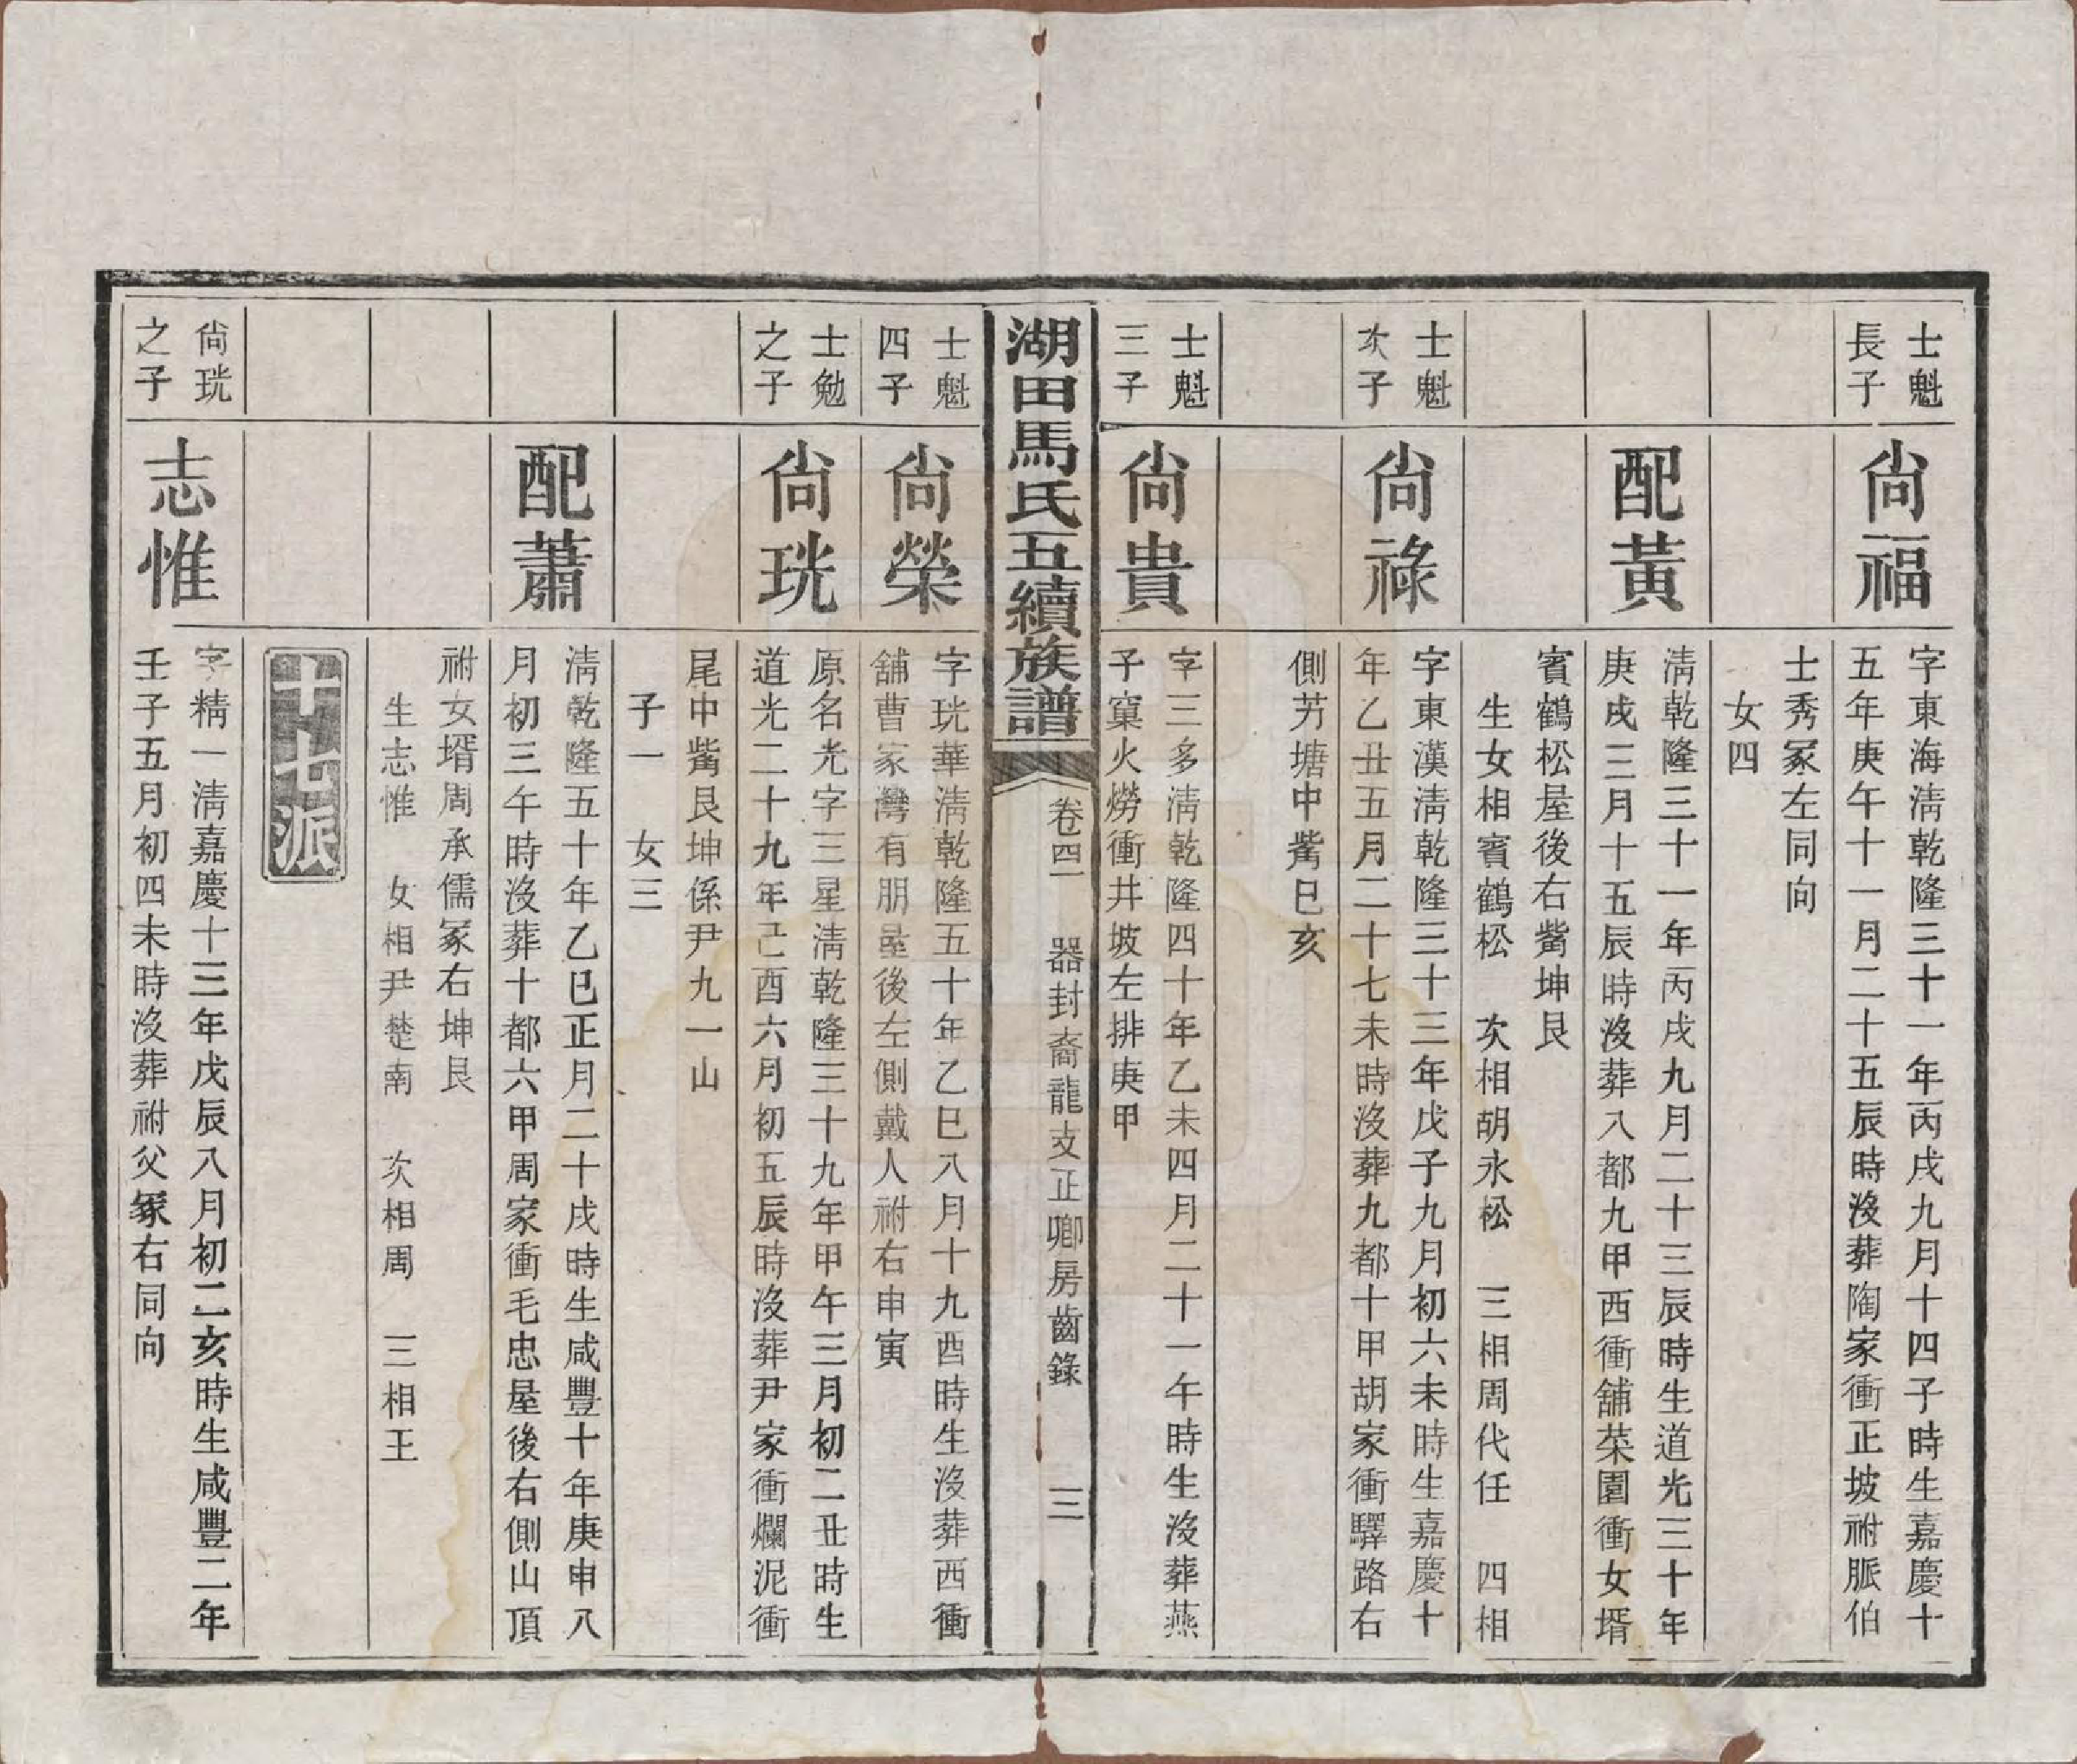 士魁
長子
尙福
字東海淸乾隆三十一年丙戌九月十四子時生嘉慶十
五年庚午十一月二十五辰時沒葬陶家衝正坡祔脈伯
士秀冢左同向
女四
配黃
淸乾隆三十一年丙戌九月二十三辰時生道光三十年
庚戌三月十五辰時沒葬八都九甲西衝舖菜園衝女壻
賓鶴松屋後右觜坤艮
生女相賓鶴松　次相胡永松　三相周代任　四相
士魁
次子
尙祿
字東漢淸乾隆三十三年戊子九月初六未時生嘉慶十
年乙丑五月二十七未時沒葬九都十甲胡家衝驛路右
側艻塘中觜巳亥
士魁
三子
尙貴
字三多淸乾隆四十年乙未四月二十一午時生沒葬燕
子窠火爎衝井坡左排庚甲
湖田馬氏五續族譜
卷四一　器封裔龍支正卿房齒錄　三
士魁
四子
尙榮
字珖華淸乾隆五十年乙巳八月十九酉時生沒葬西衝
舖曹家灣有朋屋後左側戴人祔右申寅
士勉
之子
尙珖
原名光字三星淸乾隆三十九年甲午三月初二丑時生
道光二十九年己酉六月初五辰時沒葬尹家衝爛泥衝
尾中觜艮坤係尹九一山
子一　女三
配蕭
淸乾隆五十年乙巳正月二十戌時生咸豐十年庚申八
月初三午時沒葬十都六甲周家衝毛忠屋後右側山頂
祔女壻周承儒冢右坤艮
生志惟　女相尹楚南　次相周　三相王
十七派
尙珖
之子
志惟
字精一淸嘉慶十三年戊辰八月初二亥時生咸豐二年
壬子五月初四未時沒葬祔父冢右同向